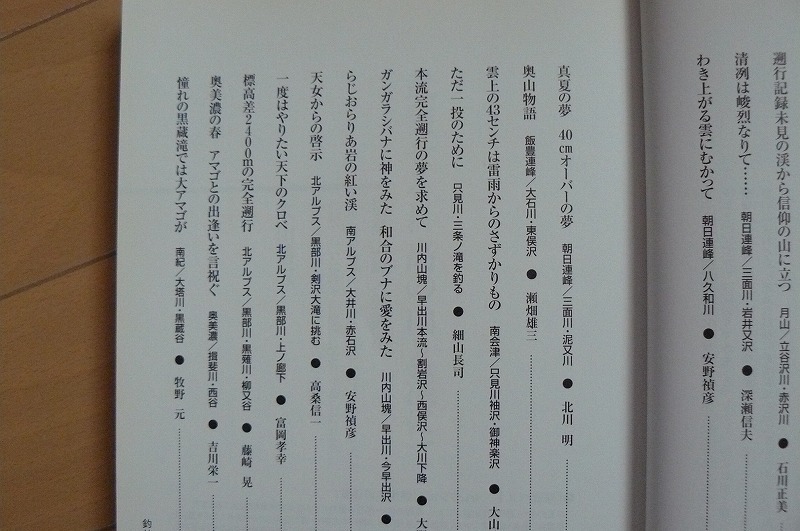 遡行記録未見の渓から信仰の山に立つ 月山/立谷沢川・赤沢川 ● 石川正美
清冽は峻烈なりて…… 朝日連峰/三面川・岩井又沢 ● 深瀬信夫
わき上がる雲にむかって 朝日連峰/八久和川 ● 安野禎彦
真夏の夢 40cmオーバーの夢 朝日連峰/三面川・泥又川 ● 北川 明
奥山物語 飯豊連峰/大石川・東俣沢 ● 瀬畑雄三
雲上の43センチは雷雨からのさずかりもの 南会津/只見川袖沢・御神楽沢 ● 大山
ただ一投のために 只見川・三条ノ滝を釣る ● 細山長司
本流完全遡行の夢を求めて 川内山塊/早出川本流〜割岩沢〜西俣沢〜大川下降 ● 大
ガンガラシバナに神をみた 和合のブナに愛をみた 川内山塊/早出川・今早出沢 ●
らじおらりあ岩の紅い渓 南アルプス/大井川・赤石沢 ● 安野禎彦
天女からの啓示 北アルプス/黒部川・剣沢大滝に挑む ● 高桑信一
一度はやりたい天下のクロベ 北アルプス/黒部川・上ノ廊下 ● 富岡孝幸
標高差2400mの完全遡行 北アルプス/黒部川・黒薙川・柳又谷 ● 藤崎 晃
奥美濃の春 アマゴとの出逢いを言祝ぐ 奥美濃/揖斐川・西谷 ● 吉川栄一
憧れの黒蔵滝では大アマゴが 南紀/大塔川・黒蔵谷 ● 牧野 元